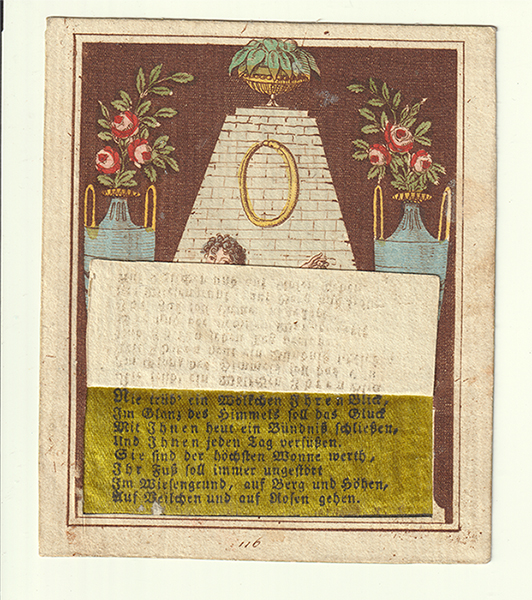 Nie trüb' ein Wölkchen Ihren Blick,
Im Glanz des Himmels soll das Glück
Mit Ihnen heut ein Bündniß schließen,
Und Ihnen jeden Tag versüßen.
Sie sind der höchsten Wonne werth,
Ihr Fuß soll immer ungestört
Im Wiesengrund, auf Berg und Höhen,
Auf Veilchen und auf Rosen gehen.
116